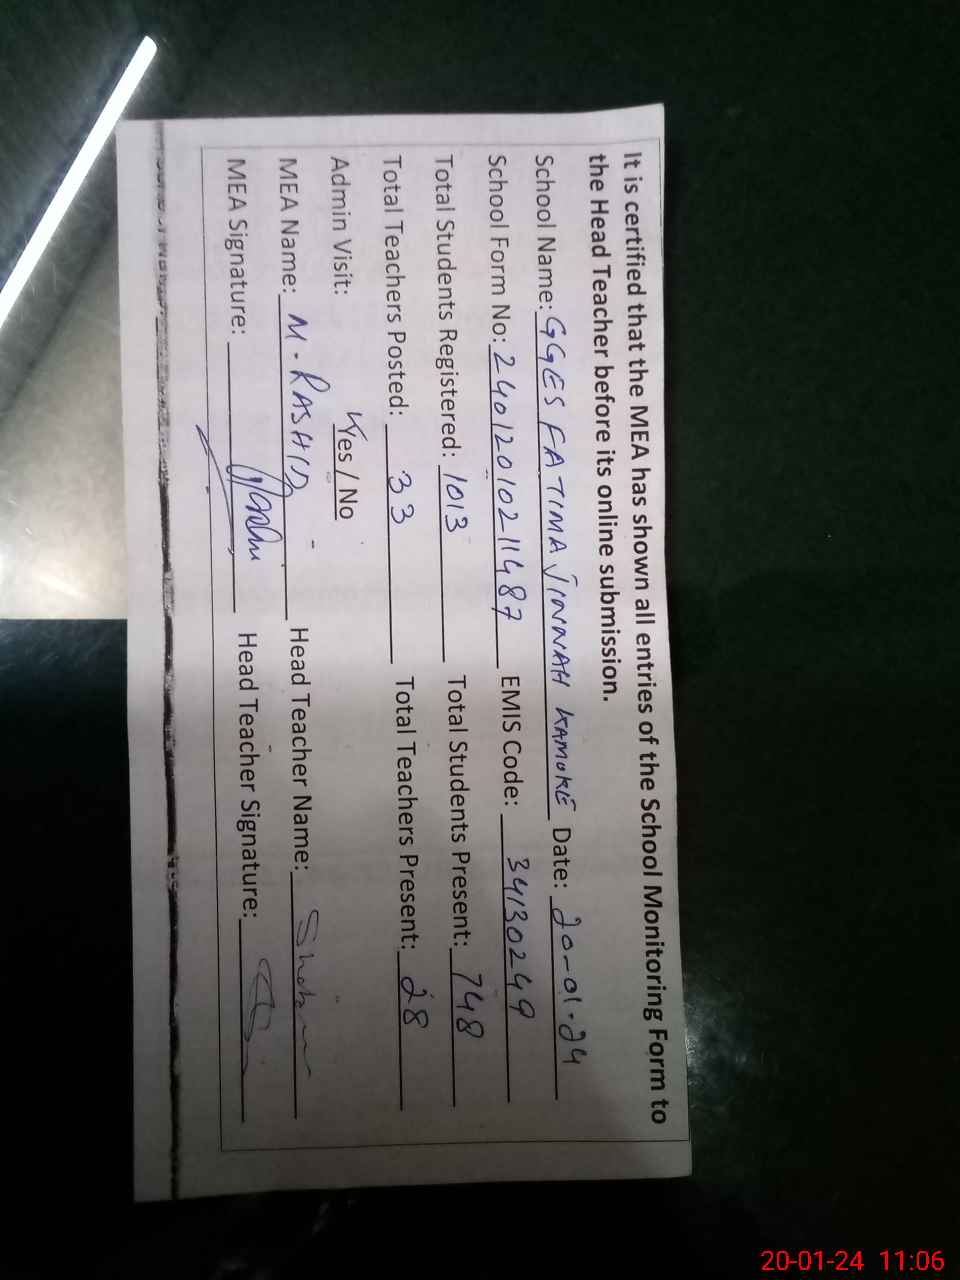 It is certified that the MEA has shown all entries of the School Monitoring Form to
the Head Teacher before its online submission.
School Name: GGES FATIMA JINNAH KAMOKE Date: 20-01-24
School Form No: 24012010211487 EMIS Code: 34130249
Total Students Registered: 1013 Total Students Present: 748
Total Teachers Posted: 33 Total Teachers Present: 28
Admin Visit: Yes / No
MEA Name: M. RASHID Head Teacher Name:
MEA Signature: Head Teacher Signature:
20-01-24 11:06